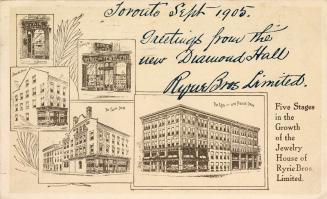 Toronto Sept 1905.
Greetings from the
new Diamond Hall
Ryrie Bros. Limited.
Five Stages
in the
Growth
of the
Jewelry
House of
Ryrie Bros.
Limited.